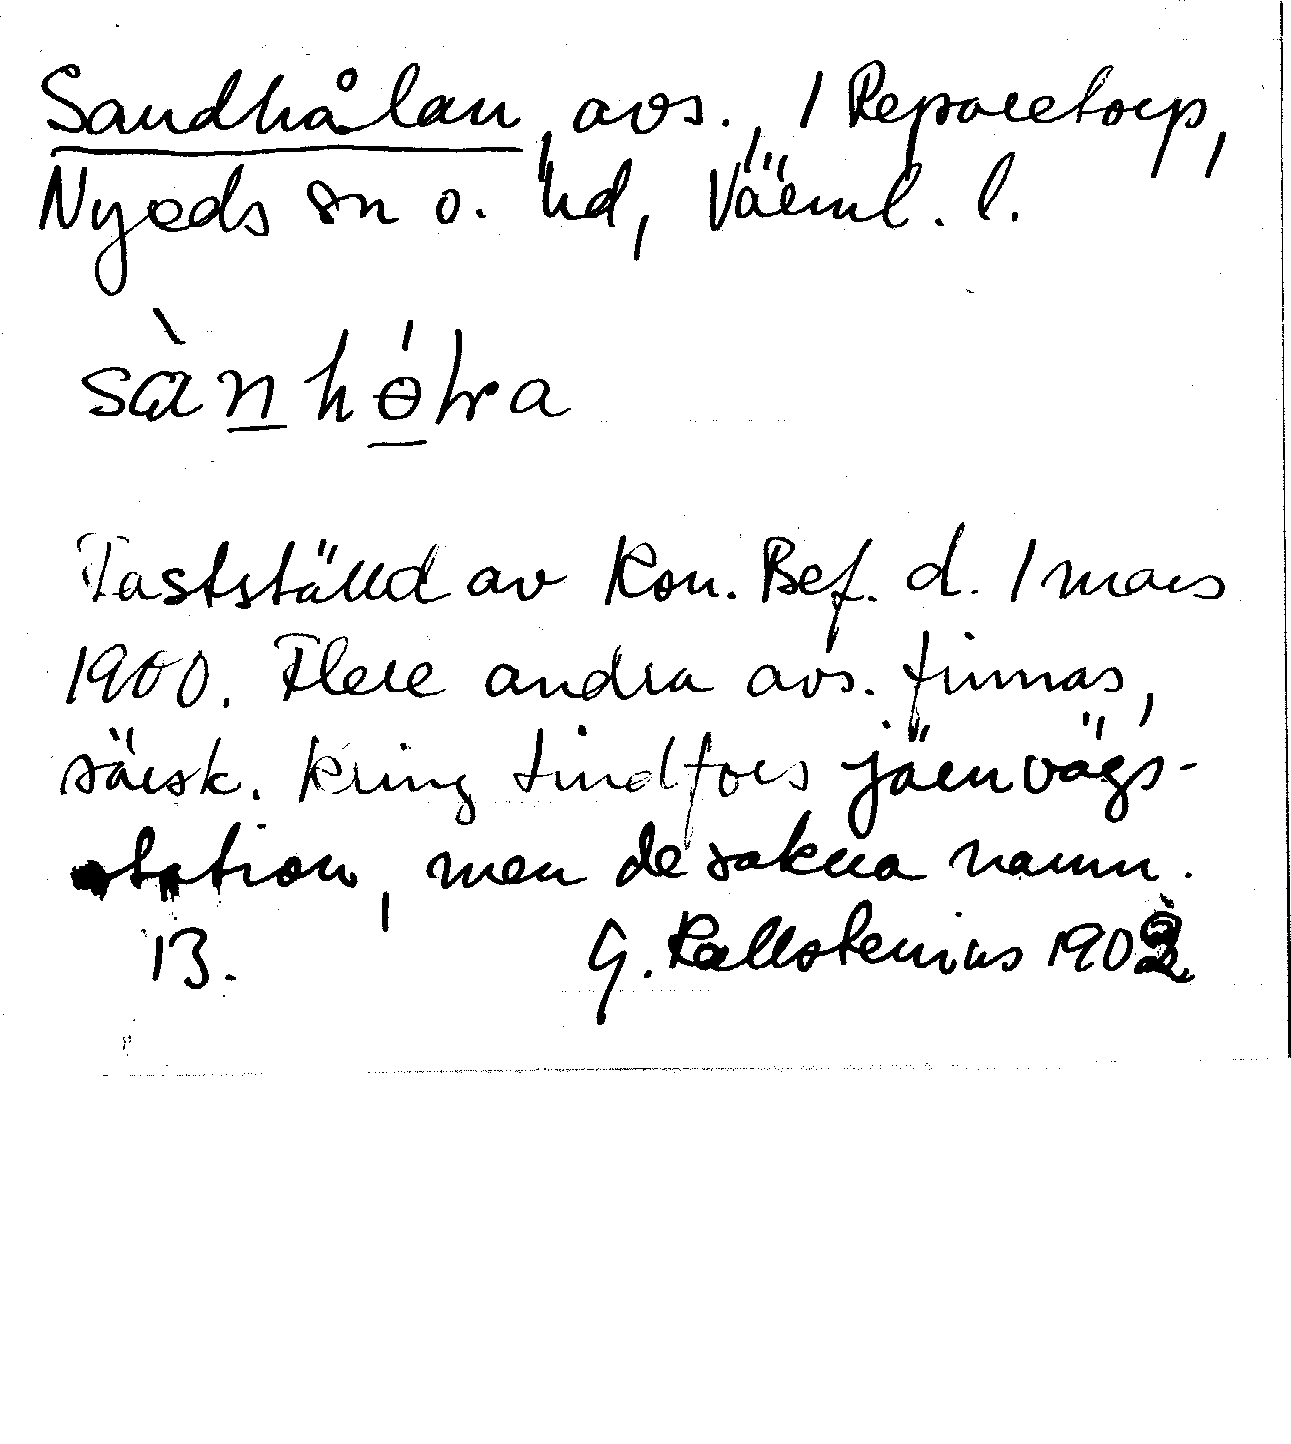 Sandhålan, avs., 1 Reparetorp,
Nyeds sn o. hd, Värml. l.
sànhó̱ɫra
Fastställd av Kon. Bef. d. 1 mars
1900. Flere andra avs. finnas,
särsk. kring Lindfors järnvägs-
station, men de sakna namn.
13. G. Kallstenius 1902